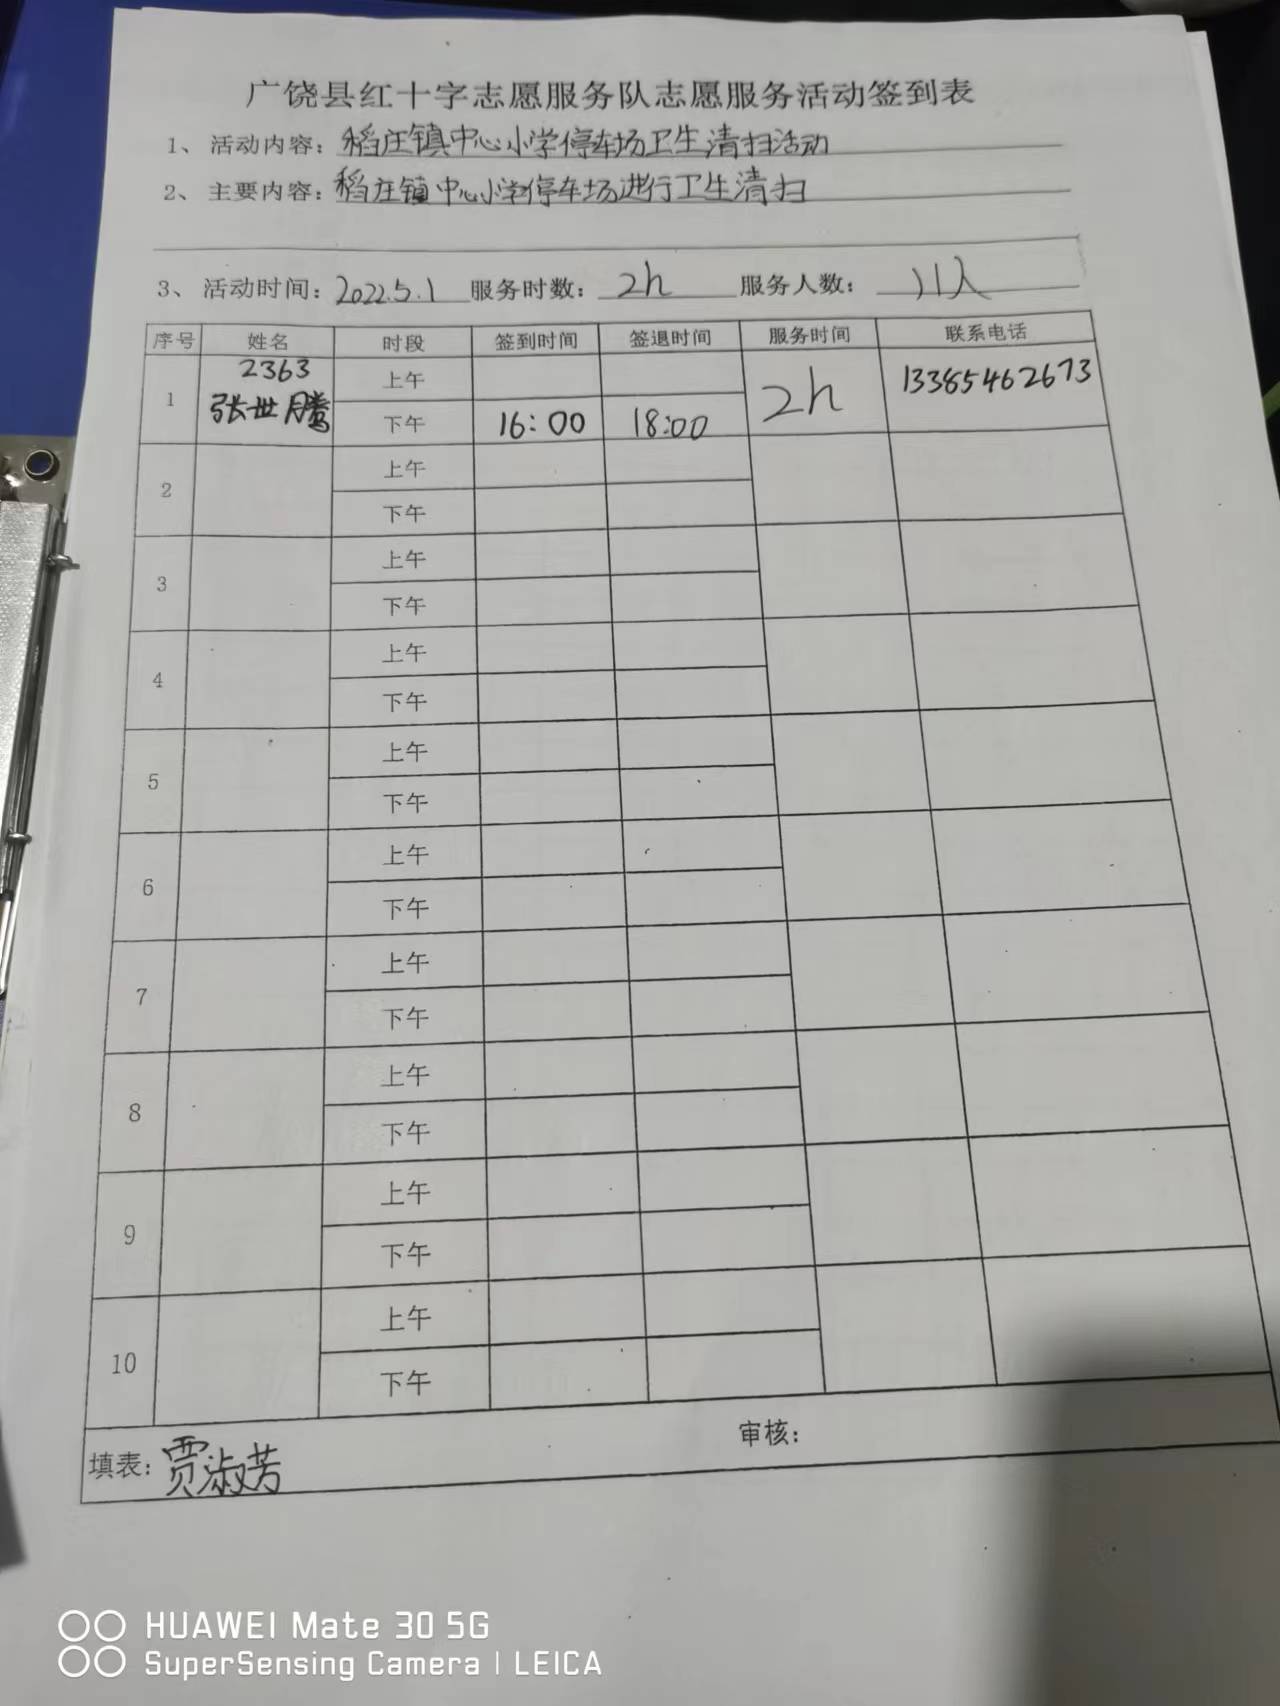 广饶县红十字志愿服务队志愿服务活动签到表
1、活动内容：稻庄镇中心小学停车场卫生清扫活动
2、主要内容：稻庄镇中心小学停车场进行卫生清扫
3、活动时间：2022.5.1 服务时数：2h 服务人数：11人
序号 姓名 时段 签到时间 签退时间 服务时间 联系电话
1 2363 张世腾 上午 2h 13385462673
下午 16:00 18:00
2 上午
下午
3 上午
下午
4 上午
下午
5 上午
下午
6 上午
下午
7 上午
下午
8 上午
下午
9 上午
下午
10 上午
下午
填表：贾淑芳 审核：
HUAWEI Mate 30 5G
SuperSensing Camera | LEICA